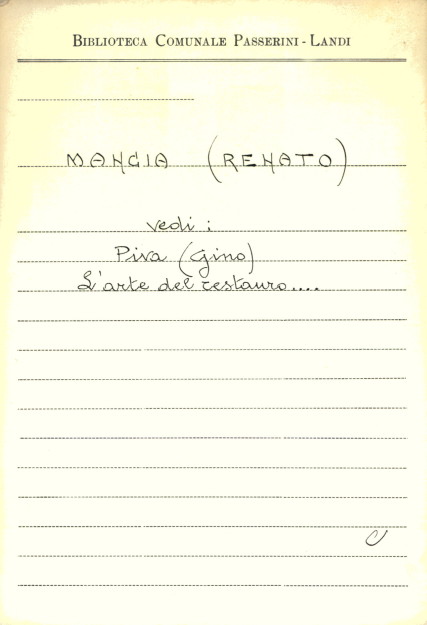 BIBLIOTECA COMUNALE PASSERINI - LANDI
MANCIA (RENATO)
vedi :
Piva (Gino)
L'arte del restauro....